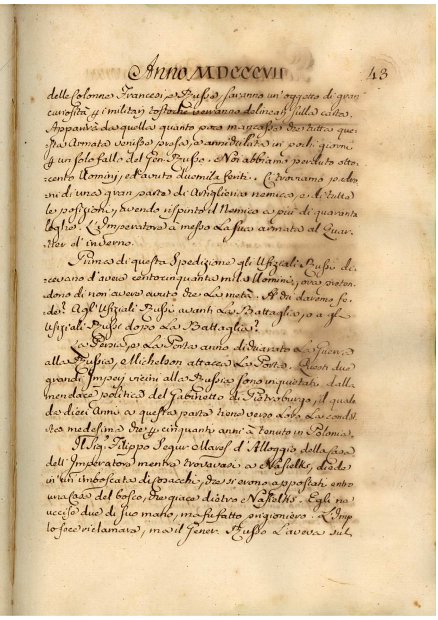 Anno MDCCCVII
43
delle Colonne Francesi, e Russe, saranno un'oggetto di gran
curiosità p i militari tostochè verranno delineati sulla carta.
Apparirà da quella quanto poco mancasse che tutta que-
sta Armata venisse presa, e annichilata in pochi giorni
p un solo fallo del Gen. Russo. Noi abbiamo perduto otto-
cento Uomini, ed avuto duemila feriti. Ci troviamo padro-
ni di una gran parte di Artiglieria nemica, e di tutte
le posizioni, avendo rispinto il Nemico a più di quaranta
leghe. L'Imperatore à messo la sua armata al Quar-
tier d'inverno.
Prima di questa Spedizione gli Uffiziali Russi di-
cevano d'avere centocinquanta mila Uomini, ora preten-
dono di non avere avuto che la metà. A chi daremo fe-
de? Agl'Uffiziali Russi avanti la Battaglia, o a gl'
Uffiziali Russi dopo la Battaglia?
La Persia, e la Porta anno dichiarato la Guerra
alla Russia, e Michelson attacca la Porta. Questi due
grandi Imperj vicini alla Russia sono inquietati dalla
mendace politica del Gabinetto di Pietroburgo, il quale
da dieci Anni a questa parte tiene verso loro la condot-
ta medesima che p cinquanta anni à tenuto in Polonia.
Il Sig. Filippo Segur Maresc. d'Alloggio della casa
dell'Imperatore mentre trovavasi a Nasielsk, diede
in un'imboscata di Cosacchi, che si erano appostati entro
una Casa del bosco, che giace dietro Nasielsk. Egli ne
uccise due di sua mano, ma fu fatto prigioniero. L'Imp.
lo fece riclamare, ma il Gener. Russo l'aveva sul